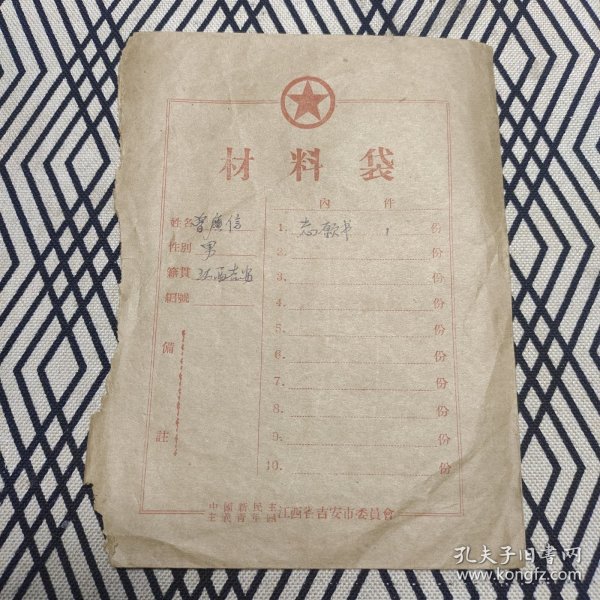 材料袋
內件
姓名 曾廣信
性別 男
籍貫 江西吉安
組號
備註
1. 志愿书 1 份
2. 份
3. 份
4. 份
5. 份
6. 份
7. 份
8. 份
9. 份
10. 份
中國新民主主義青年團江西省吉安市委員會
孔夫子旧书网
www.kongfz.com